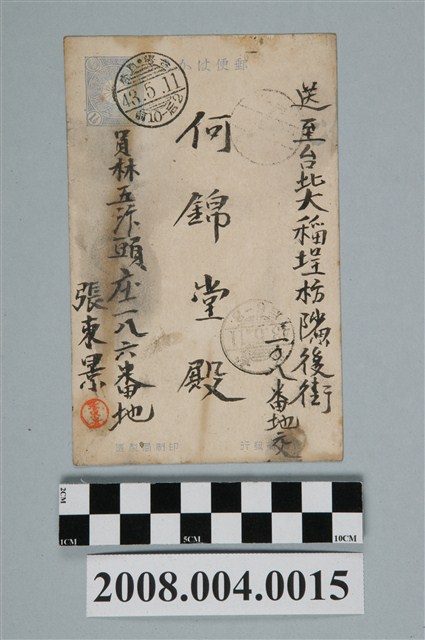 郵便はかき
送至台北大稲埕枋隙後街
一百八番地交
何錦堂殿
員林五汴頭庄一八六番地
張東景
43.5.11
2CM
1CM
5CM
10CM
2008.004.0015